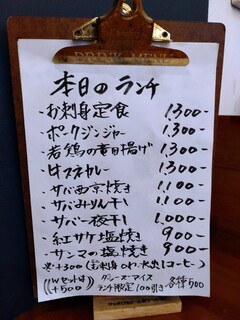 本日のランチ
・お刺身定食 1,300-
・ポークジンジャー 1,300-
・若鶏の竜田揚げ 1,300-
・牛スネカレー 1,300-
・サバ西京焼き 1,100-
・サバみりん干し 1,100-
・サバ一夜干し 1,000-
・紅サケ塩焼き 900-
・サンマの塩焼き 900-
+300 (お刺身 コーヒー)
Wセットは +500
アイス
ランチ限定 100引き 各種500